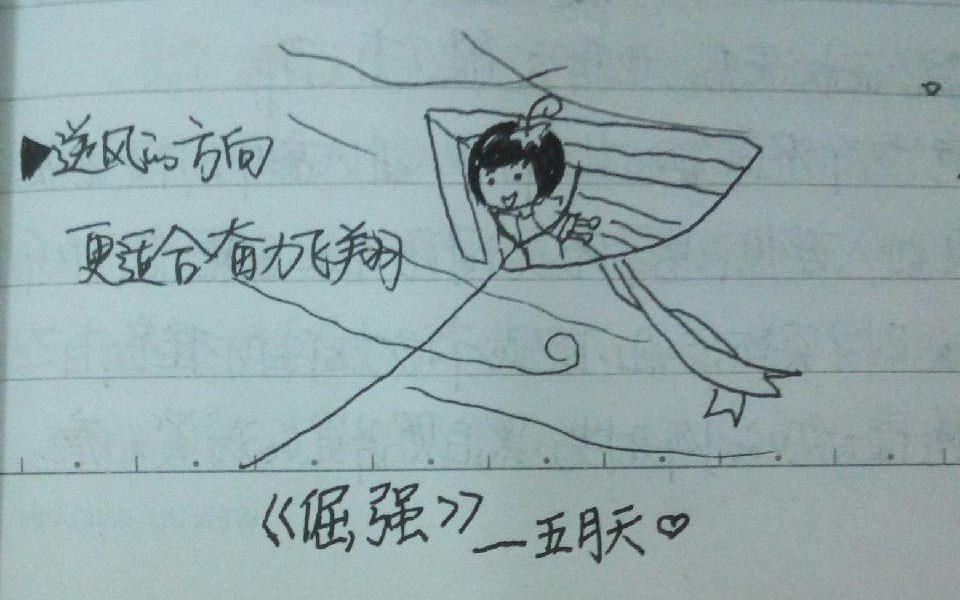 逆风的方向
更适合奋力飞翔
《倔强》—五月天♡